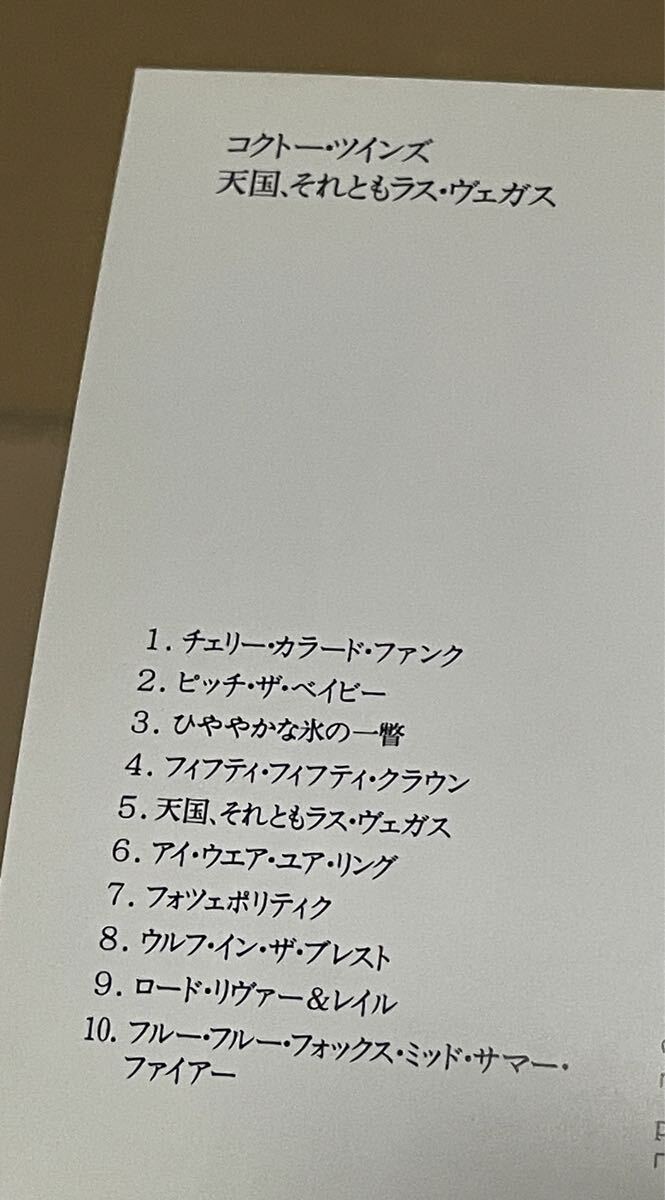 コクトー・ツインズ
天国、それともラス・ヴェガス
1. チェリー・カラード・ファンク
2. ピッチ・ザ・ベイビー
3. ひややかな氷の一瞥
4. フィフティ・フィフティ・クラウン
5. 天国、それともラス・ヴェガス
6. アイ・ウエア・ユア・リング
7. フォツェポリティク
8. ウルフ・イン・ザ・ブレスト
9. ロード・リヴァー&レイル
10. フルー・フルー・フォックス・ミッド・サマー・
ファイアー